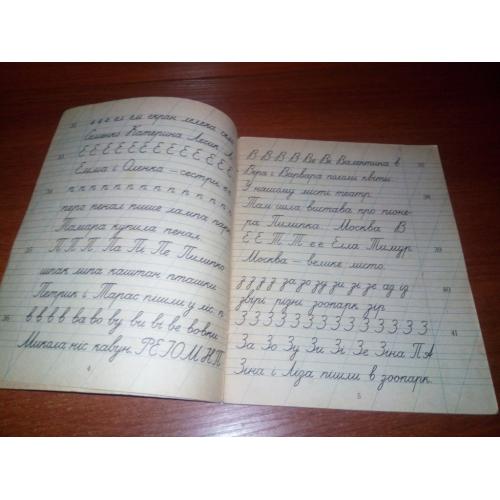 32
е е е ел ем екран лелека
Семенко Катерина Лесик
33
Е Е Е Е Е Е Е Е Е Е Е
Емма і Оленка – сестри.
34
п п п п п п п п п п п п п
пера пенал пише лампа парк
Тамара купила пенал.
35
П П П Па Пі Пе Пилипко
шпак липа каштан пташки
Петрик і Тарас пішли у ліс
36
в в в в ва во ву ви ві ве вовни
Микола ніс кавун. Р Е Г Ю М Н П
4
В В В В Ви Ве Валентина в
37
Вєра і Варвара пололи квіти
У нашому місті театр.
38
Там ішла вистава про піоне-
ра Пилипка. Москва В
39
Е Е Т Т е е Елла Тимур
Москва – велике місто.
40
з з з з з за зо зу зи зі зе аз із
звірі різні зоопарк зір
З З З З З З З З З З З З З
41
За Зо Зу Зи Зі Зе Зіна П А
Зіна і Ліза пішли в зоопарк.
5